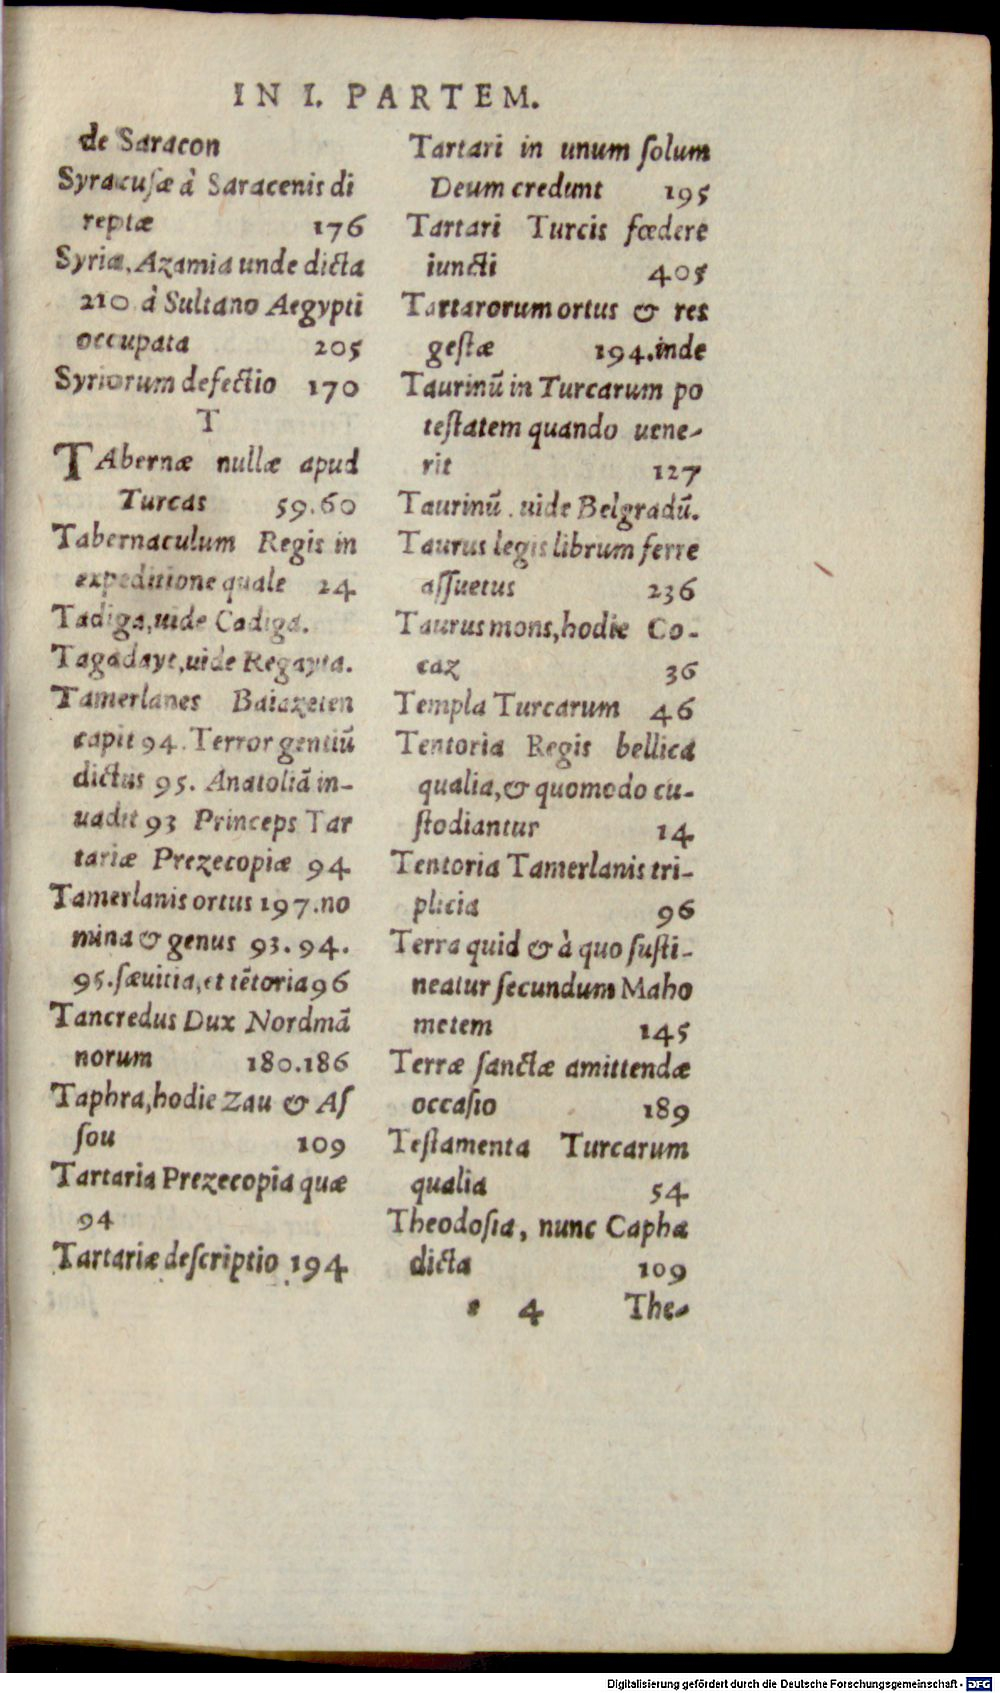 IN I. PARTEM.
de Saracon
Syracuſæ à Saracenis di
reptæ 176
Syria, Azamia unde dicta
210 à Sultano Aegypti
occupata 205
Syriorum defectio 170
T
TAbernæ nullæ apud
Turcas 59.60
Tabernaculum Regis in
expeditione quale 24
Tadiga, uide Cadiga.
Tagadayt, uide Regayta.
Tamerlanes Baiazeten
capit 94. Terror gentiũ
dictus 95. Anatoliã in-
uadit 93 Princeps Tar
tariæ Prezecopiæ 94
Tamerlanis ortus 197. no
mina & genus 93. 94.
95. ſæuitia, et tẽtoria 96
Tancredus Dux Nordmã
norum 180.186
Taphra, hodie Zau & Aſ
ſou 109
Tartaria Prezecopia quæ
94
Tartariæ deſcriptio 194
Tartari in unum ſolum
Deum credunt 195
Tartari Turcis fœdere
iuncti 405
Tartarorum ortus & res
geſtæ 194. inde
Taurinũ in Turcarum po
teſtatem quando uene-
rit 127
Taurinũ. uide Belgradũ.
Taurus legis librum ferre
aſſuetus 236
Taurus mons, hodie Co-
caz 36
Templa Turcarum 46
Tentoria Regis bellica
qualia, & quomodo cu-
ſtodiantur 14
Tentoria Tamerlanis tri-
plicia 96
Terra quid & à quo ſuſti-
neatur ſecundum Maho
metem 145
Terræ ſanctæ amittendæ
occaſio 189
Teſtamenta Turcarum
qualia 54
Theodoſia, nunc Capha
dicta 109
* 4 The-
Digitalisierung gefördert durch die Deutsche Forschungsgemeinschaft - DFG